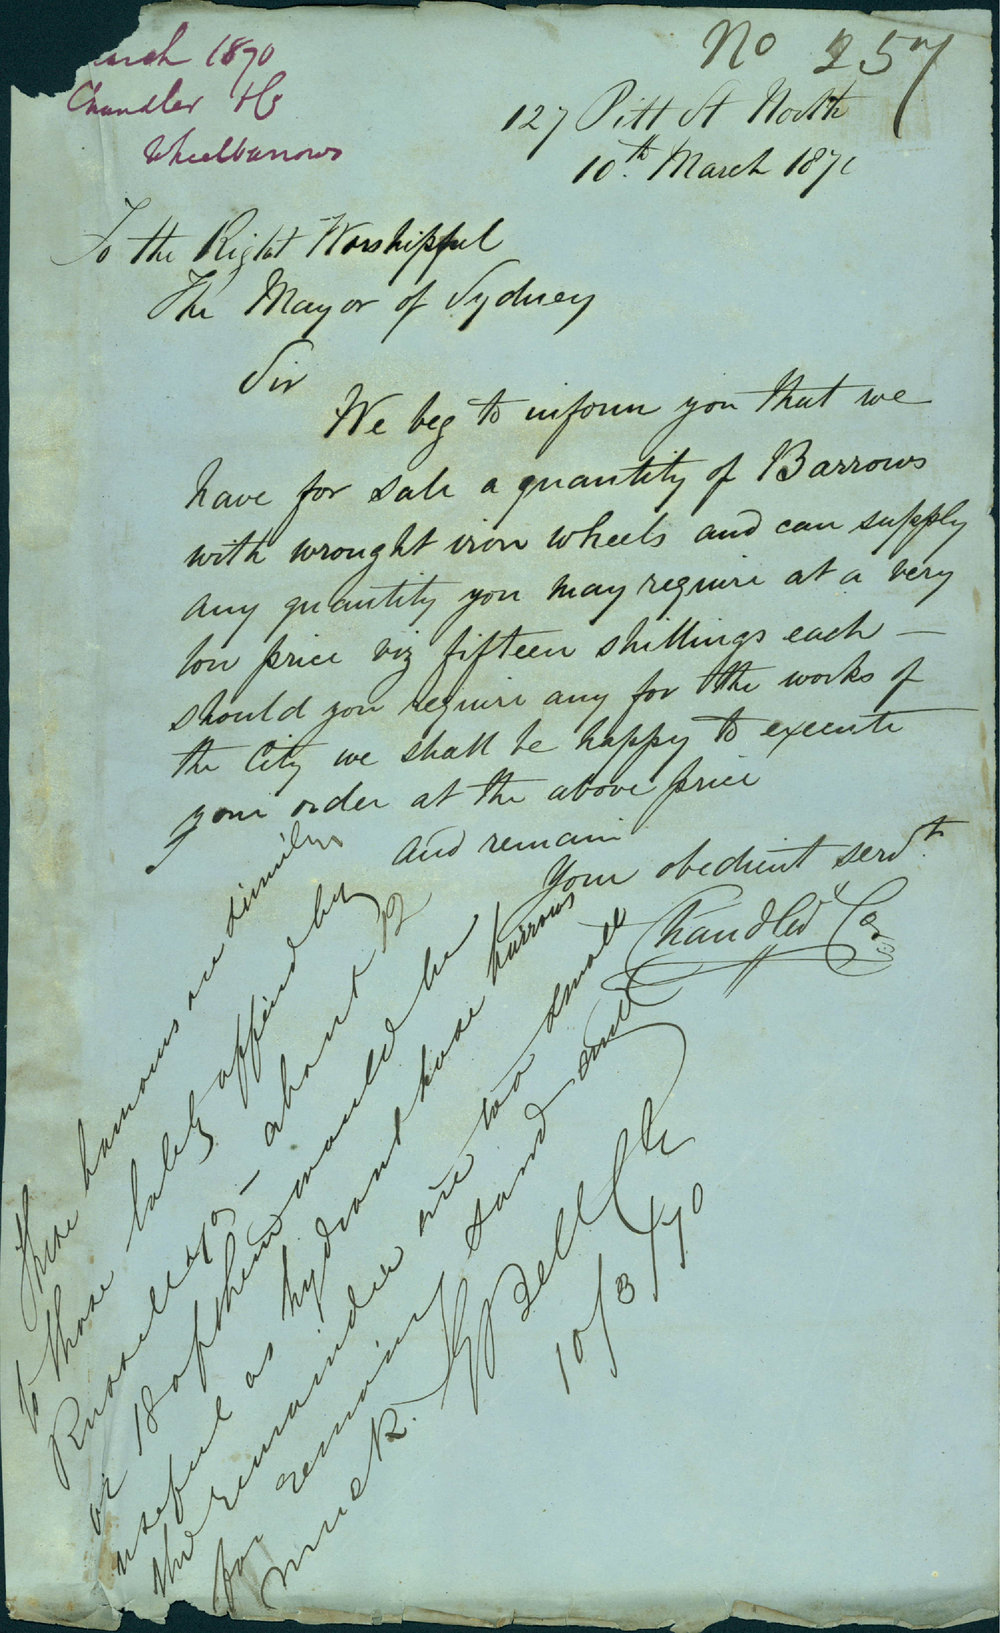 arch 1870
Chandler & Co
Wheelbarrows
No 257
127 Pitt St North
10th. March 1870
To the Right Worshipful
The Mayor of Sydney
Sir
We beg to inform you that we
have for sale a quantity of Barrows
with wrought iron wheels and can supply
any quantity you may require at a very
low price viz fifteen shillings each —
should you require any for the works of
the City we shall be happy to execute
your order at the above price
and remain
Your obedient servt.
Chandler & Co
These barrows are similar
to those lately offered by
Russell & Co — about 12
or 18 of them would be
useful as hydrant hose barrows
the remainder are too small
for removing sand and
muck.
Bell CE
10/3/70